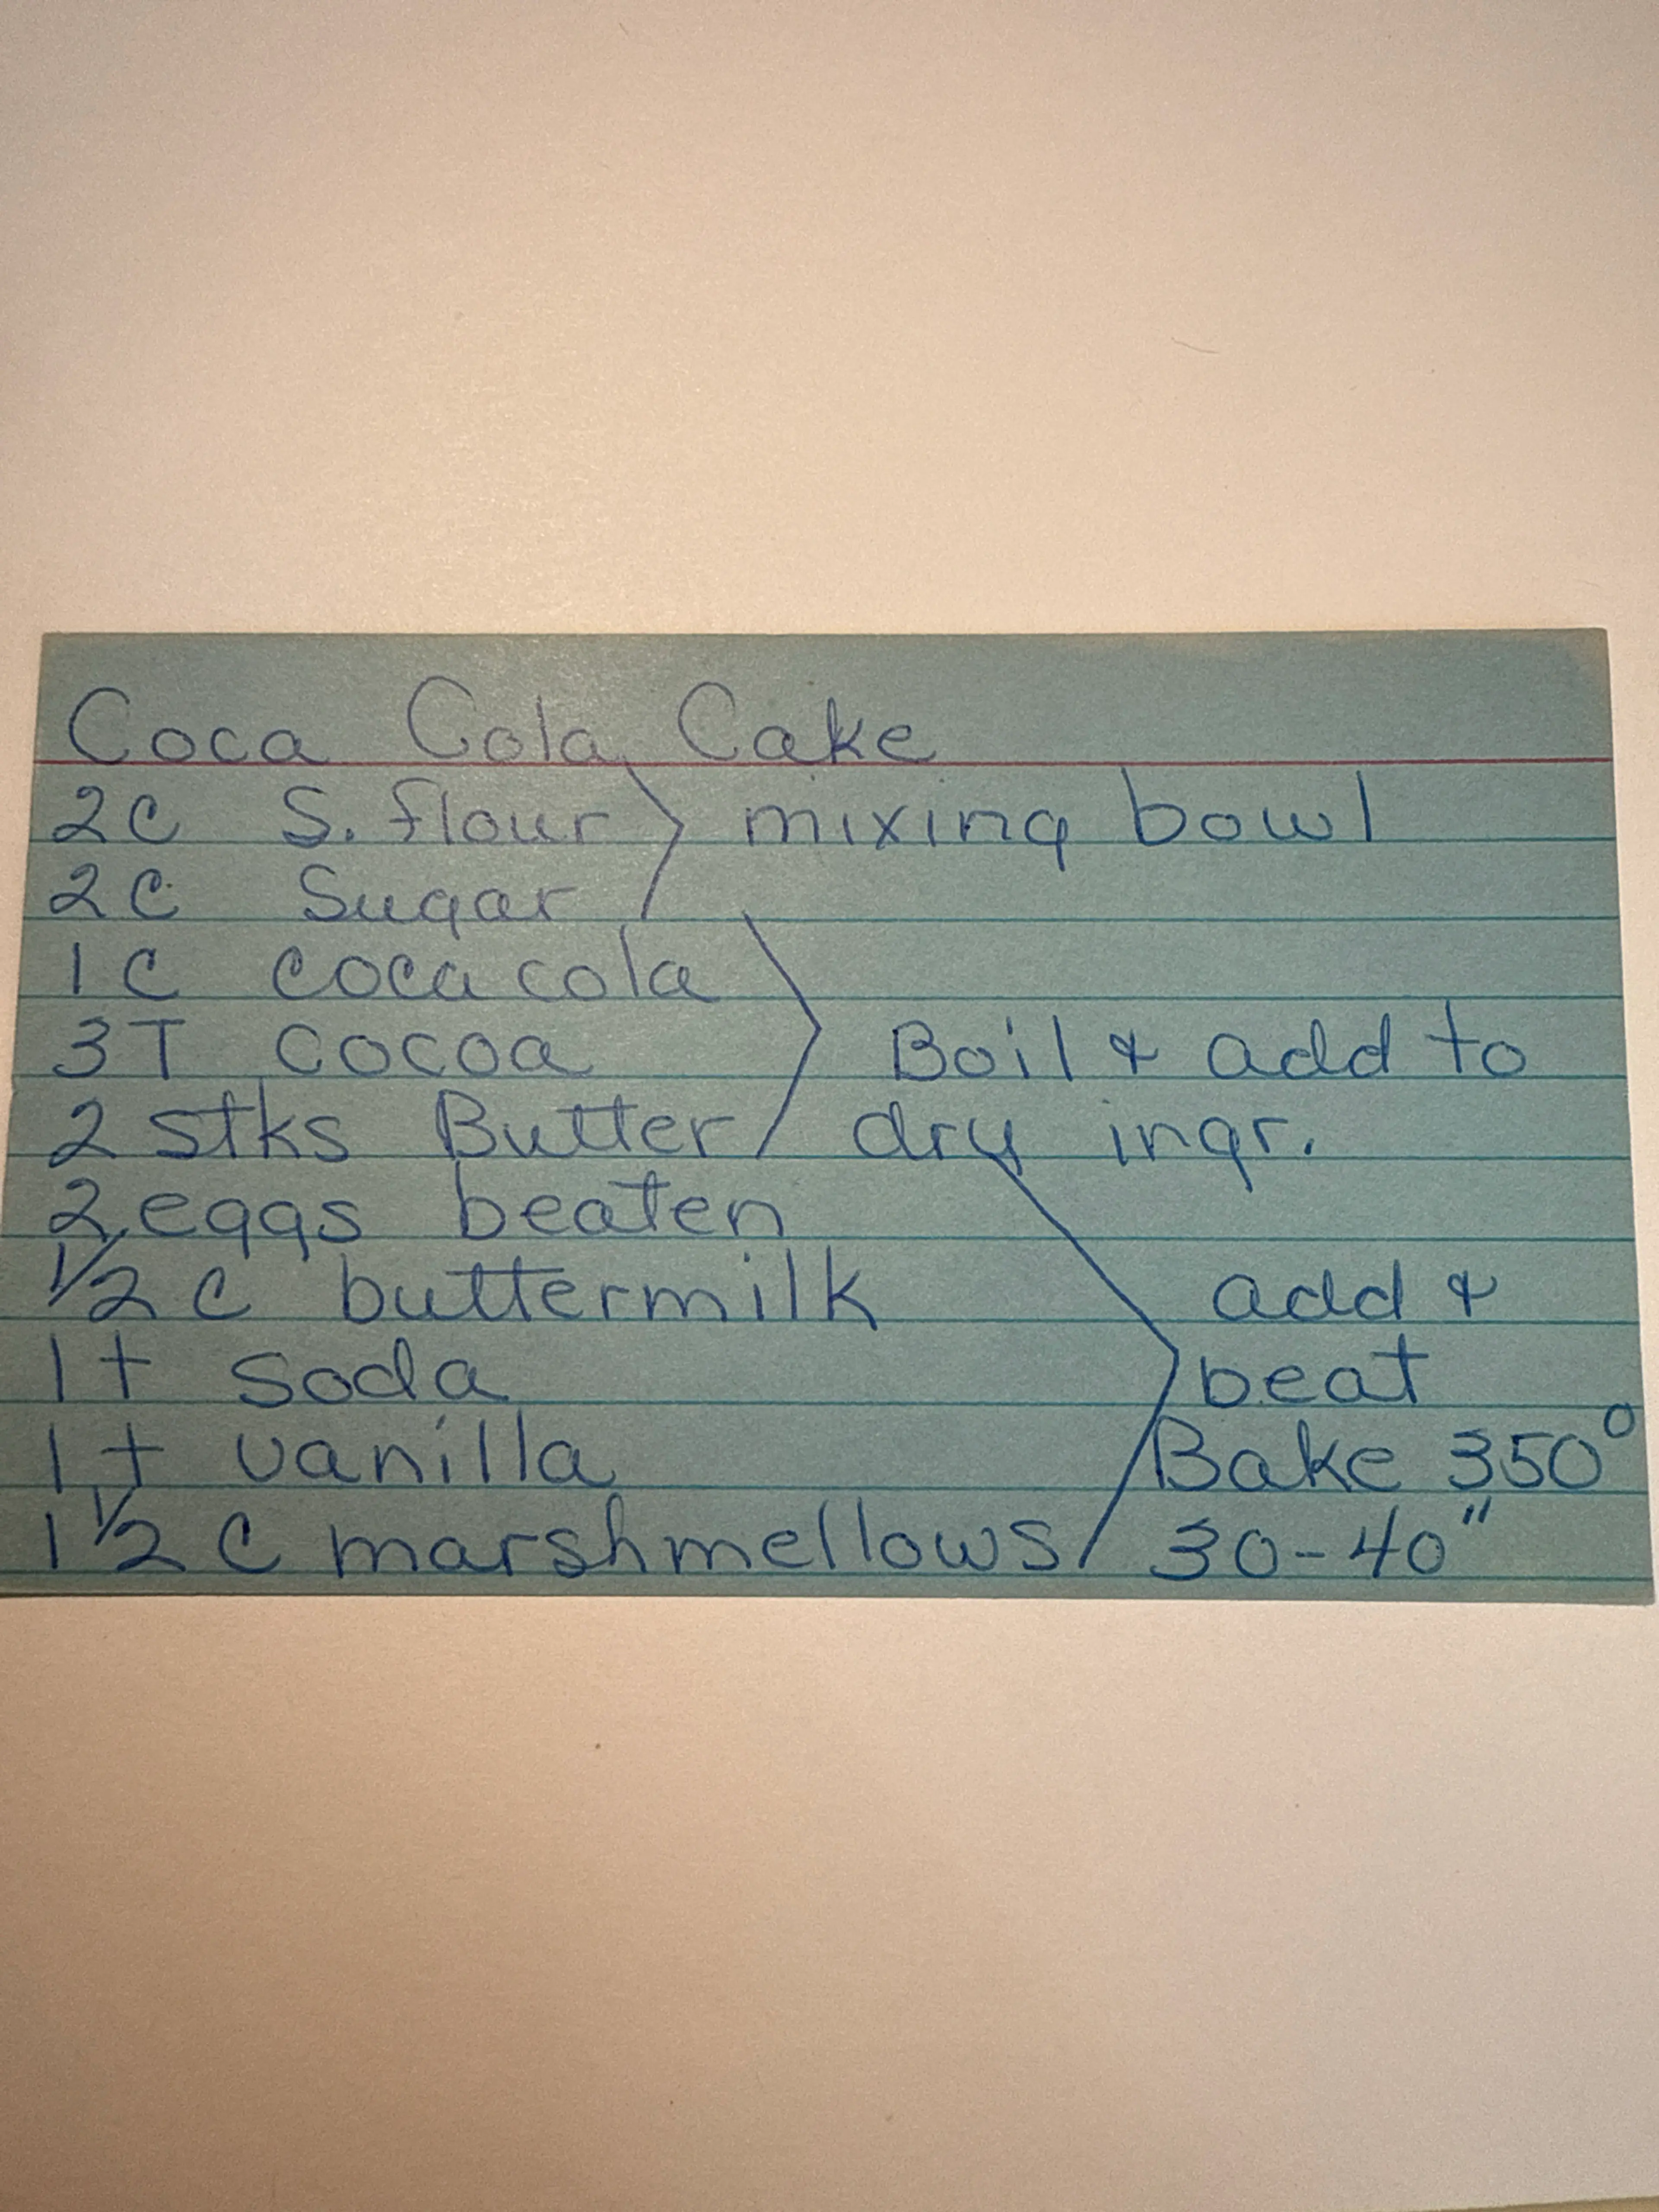 Coca Cola Cake
2c S. flour mixing bowl
2c Sugar
1c coca cola
3T cocoa Boil & add to
2 stks Butter dry ingr.
2 eggs beaten
1/2 c buttermilk add &
1t soda beat
1t vanilla Bake 350°
1 1/2 c marshmellows 30-40"